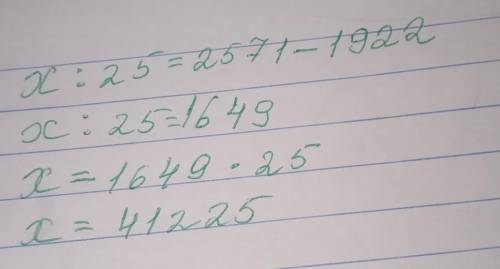 x : 25 = 2571 - 1922
x : 25 = 1649
x = 1649 · 25
x = 41225